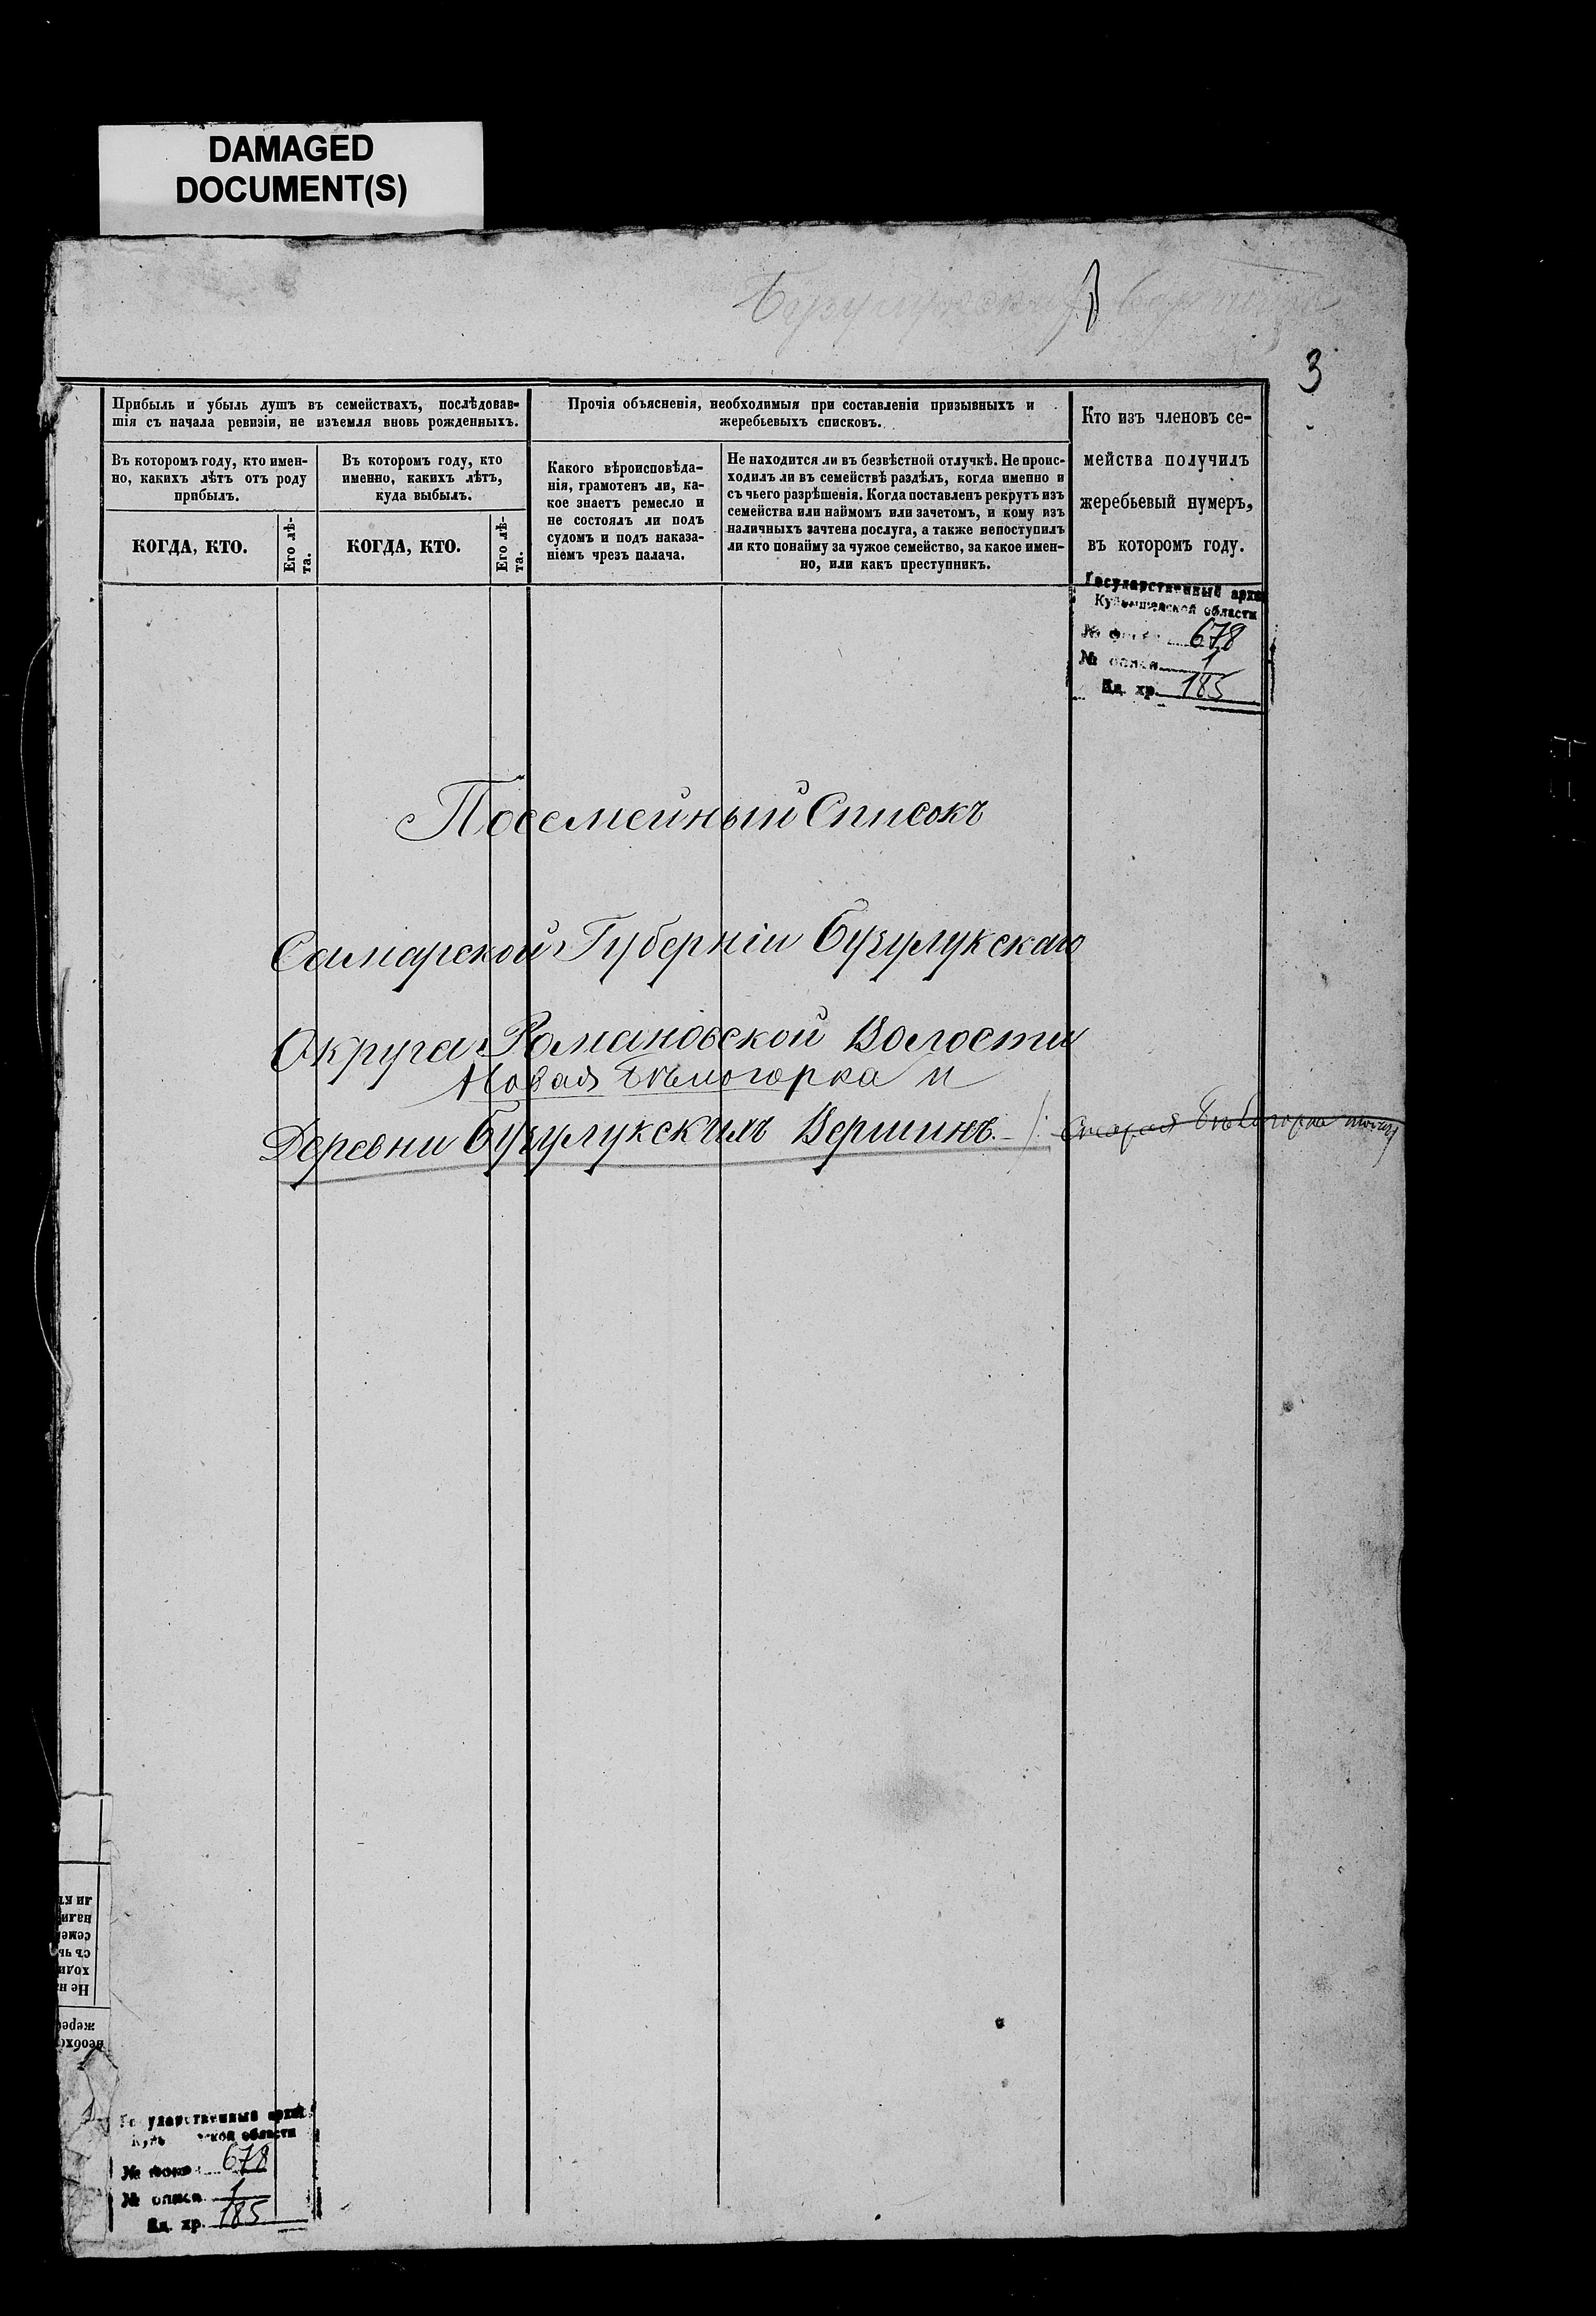 DAMAGED
DOCUMENT(S)
3
Прибыль и убыль душъ въ семействахъ, послѣдовав-
шія съ начала ревизіи, не изъемля вновь рожденныхъ.
Въ которомъ году, кто имен-
но, какихъ лѣтъ отъ роду
прибылъ.
КОГДА, КТО.
Его лѣ-
та.
Въ которомъ году, кто
именно, какихъ лѣтъ,
куда выбылъ.
КОГДА, КТО.
Его лѣ-
та.
Прочія объясненія, необходимыя при составленіи призывныхъ и
жеребьевыхъ списковъ.
Какого вѣроисповѣда-
нія, грамотенъ ли, ка-
кое знаетъ ремесло и
не состоялъ ли подъ
судомъ и подъ наказа-
ніемъ чрезъ палача.
Не находится ли въ безвѣстной отлучкѣ. Не проис-
ходилъ ли въ семействѣ раздѣлъ, когда именно и
съ чьего разрѣшенія. Когда поставленъ рекрутъ изъ
семейства или наймомъ или зачетомъ, и кому изъ
наличныхъ зачтена послуга, а также непоступилъ
ли кто понайму за чужое семейство, за какое имен-
но, или какъ преступникъ.
Кто изъ членовъ се-
мейства получилъ
жеребьевый нумеръ,
въ которомъ году.
Государственный архив
Куйбышевской области
№ фонда 678
№ описи 1
Ед. хр. 185
Посемейный Списокъ
Самарской Губерніи Бузулукскаго
Округа Романовской Волости
Новая Бѣлогорка и
Деревни Бузулукскихъ Вершинъ.
Старая Бѣлогорка
ли кт
нали
семе
съ чь
ходи
Не на
жереб
необхо
Государственный архив
Куйбышевской области
№ фонда 678
№ описи 1
Ед. хр. 185